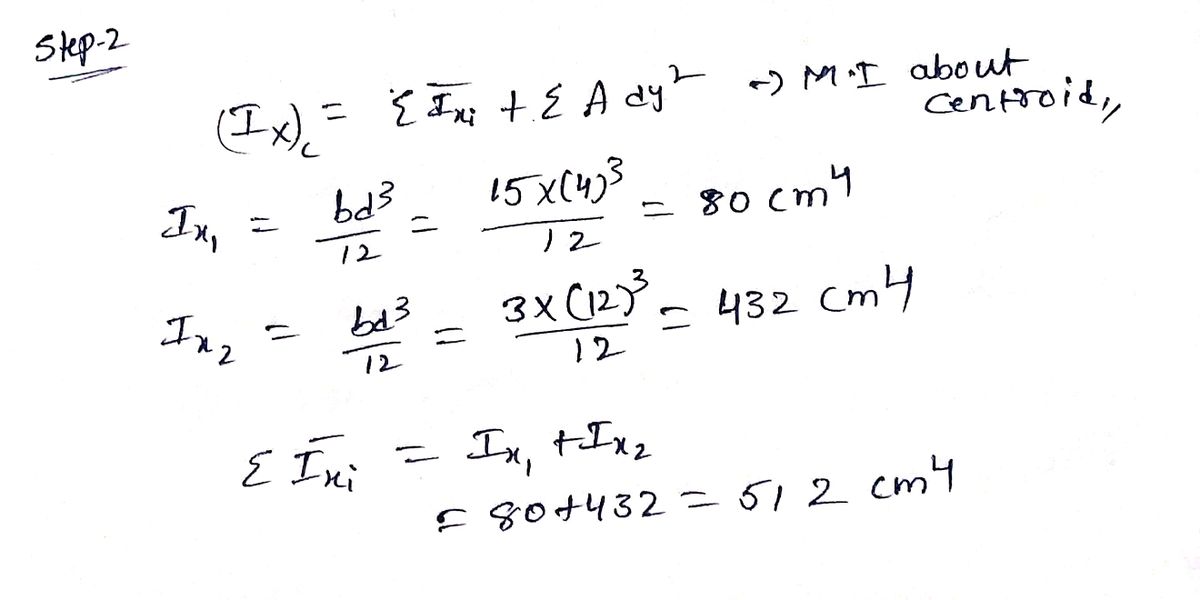 Step-2
(Ix)c = Σ Īxi + Σ A dy² → M.I about centroid,,
Ix₁ = bd³/12 = 15x(4)³/12 = 80 cm⁴
Ix₂ = bd³/12 = 3x(12)³/12 = 432 cm⁴
Σ Īxi = Ix₁ + Ix₂
= 80+432 = 512 cm⁴